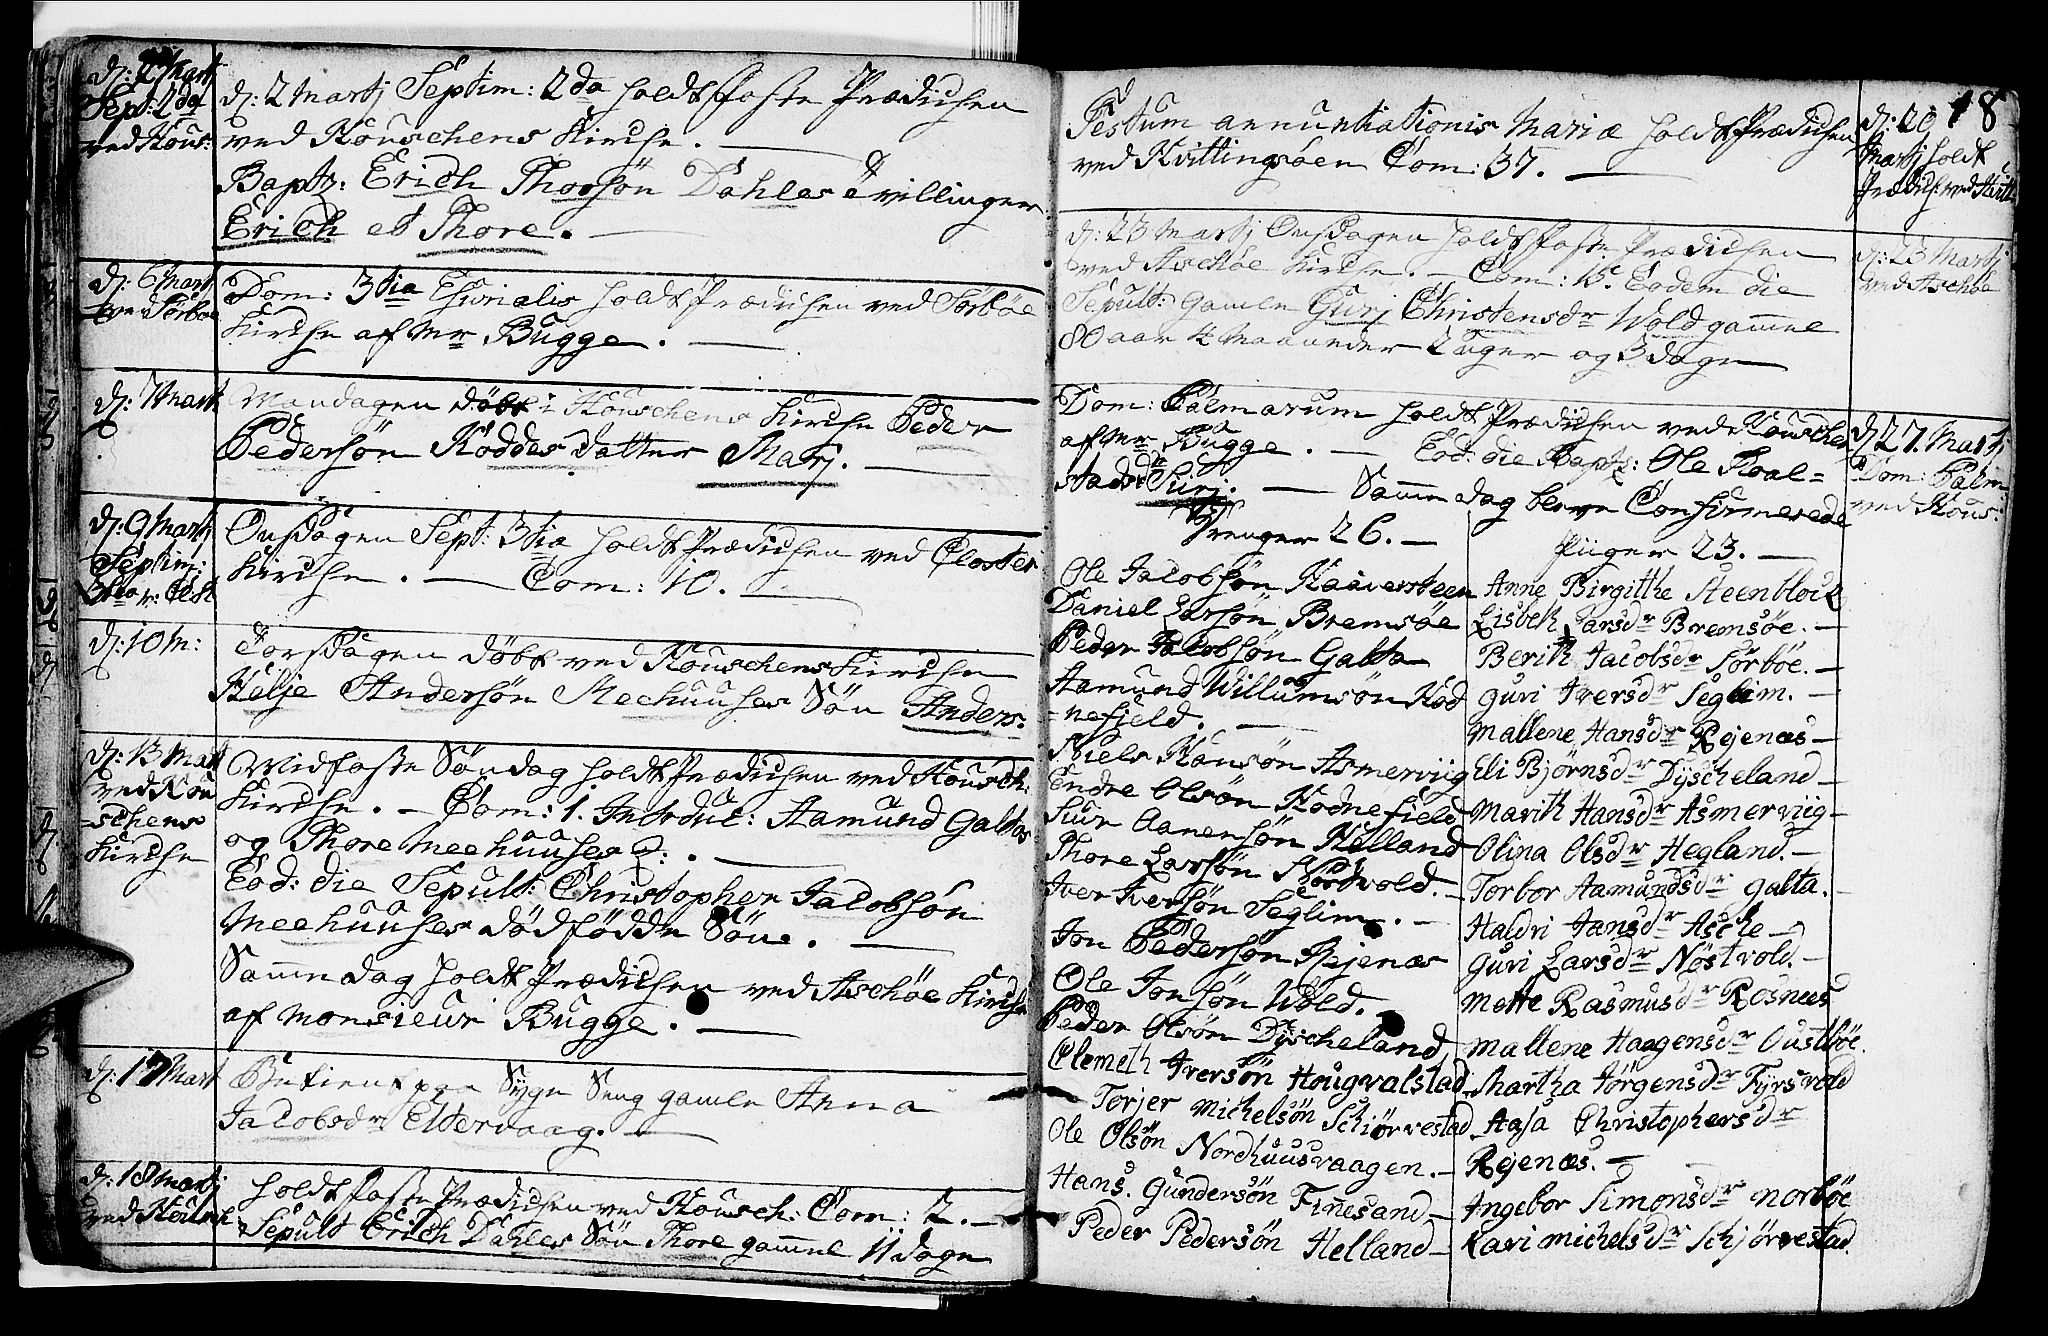 d: 2 Martj
Sept: 2da
ved Hous:
d: 2 Martj Septim: 2da holdt faste Prædichen
ved Houschens Kirche. —
Baptz: Erich Thorsön Dahles tvillinger
Erich et Thore. —
d: 6 Mart
ved Sörböe
Dom: 3tia Esurialis holdt Prædichen ved Sörböe
Kirche af Mr Bugge. —
d: 7 Mart:
Mandagen döbt i Houschens Kirche Peder
Pedersön Roddes datter Marj. —
d: 9 Martj
Septim:
3tia v: Clst
Onsdagen Sept: 3tia holdt Prædichen ved Closter
Kirche. — Com: 10. —
d: 10 M:
Torsdagen döbt ved Houschens Kirche
Helje Andersön Meehuuses Sön Anders:
d: 13 Mart
ved Hou
-schens
Kirche
Midfaste Söndag holdt Prædichen ved Housch:
Kirche. — Com: 1. Introduc: Aamund Galtes
og Thore Meehuuses Q: . —
Eod: die Sepult: Christopher Jacobsön
Meehuuses dödfödde Sön. —
Samme dag holdt Prædichen ved Aschöe Kirche
af Monsieur Bugge. —
d: 17 Mart
Betient paa Syge Seng gamle Anna
Jacobsdr Eltervaag. —
d: 18 Martj
ved Housch:
holdt faste Prædichen ved Housch: Com: 2. —
Sepult Erich Dahles Sön Thore gammel 11 dage
18
Festum annuntiationis Mariæ holdt Prædichen
ved Hvittingsöen Com: 37. —
d: 20
Martj holdt
Prædich ved Hvitt
d: 23 Martj Onsdagen holdt faste Prædichen
ved Aschöe Kirche. — Com: 15. Eodem die
Sepult: gamle Gurj Christensdr Wold gammel
80 aar 4 Maaneder 2 uger og 3 dage
d: 23 Martj
ved Aschöe
Dom: Palmarum holdt Prædichen ved Houschen
af Mr Bugge. — Eod: die Bapt: Ole Hval=
stads dr Surj. — Samme dag bleve Confirmerede
d: 27. Martj
Dom: Palm:
ved Hous:
Drenger 26. —
Ole Jacobsön Haaversteen
Daniel Larsön Bremsöe
Peder Jacobsön Galta
Aamund Willumsön Hod
-nefield. —
Niels Hansön Asmerviig
Endre Olsön Hodnefield
Siur Aanensön Helland
Thore Larsön Nöstvold. —
Iver Iversön Seglim. —
Jon Pedersön Rejenæs
Ole Jonsön Wold. —
Peder Olsön Dyscheland
Clemeth Iversön Hougvalstad
Torjer Michelsön Schiörrestad
Ole Olsön Nordhuusvaagen. —
Hans Gundersön Finesand —
Peder Pedersön Helland —
Piiger 23. —
Anne Birgitthe Steenblock
Lisbeth Larsdr Bremsöe. —
Berith Jacobsdr Sörböe. —
Guri Iversdr Seglim. —
Mallene Hansdr Rejenæs —
Eli Björnsdr Dyscheland —
Marith Hansdr Asmerviig —
Olina Olsdr Hegland. —
Torbor Aamundsdr Galta. —
Haldri Jansdr Asche —
Guri Larsdr Nöstvold. —
Mette Rasmusdr Rosnees
Mallene Haagensdr Oustböe.
Martha Jörgensdr Fyrsvold
Aasa Christophersdr
Rejenæs. —
Angebor Simonsdr Norböe
Kari Michelsdr Schjörrestad.